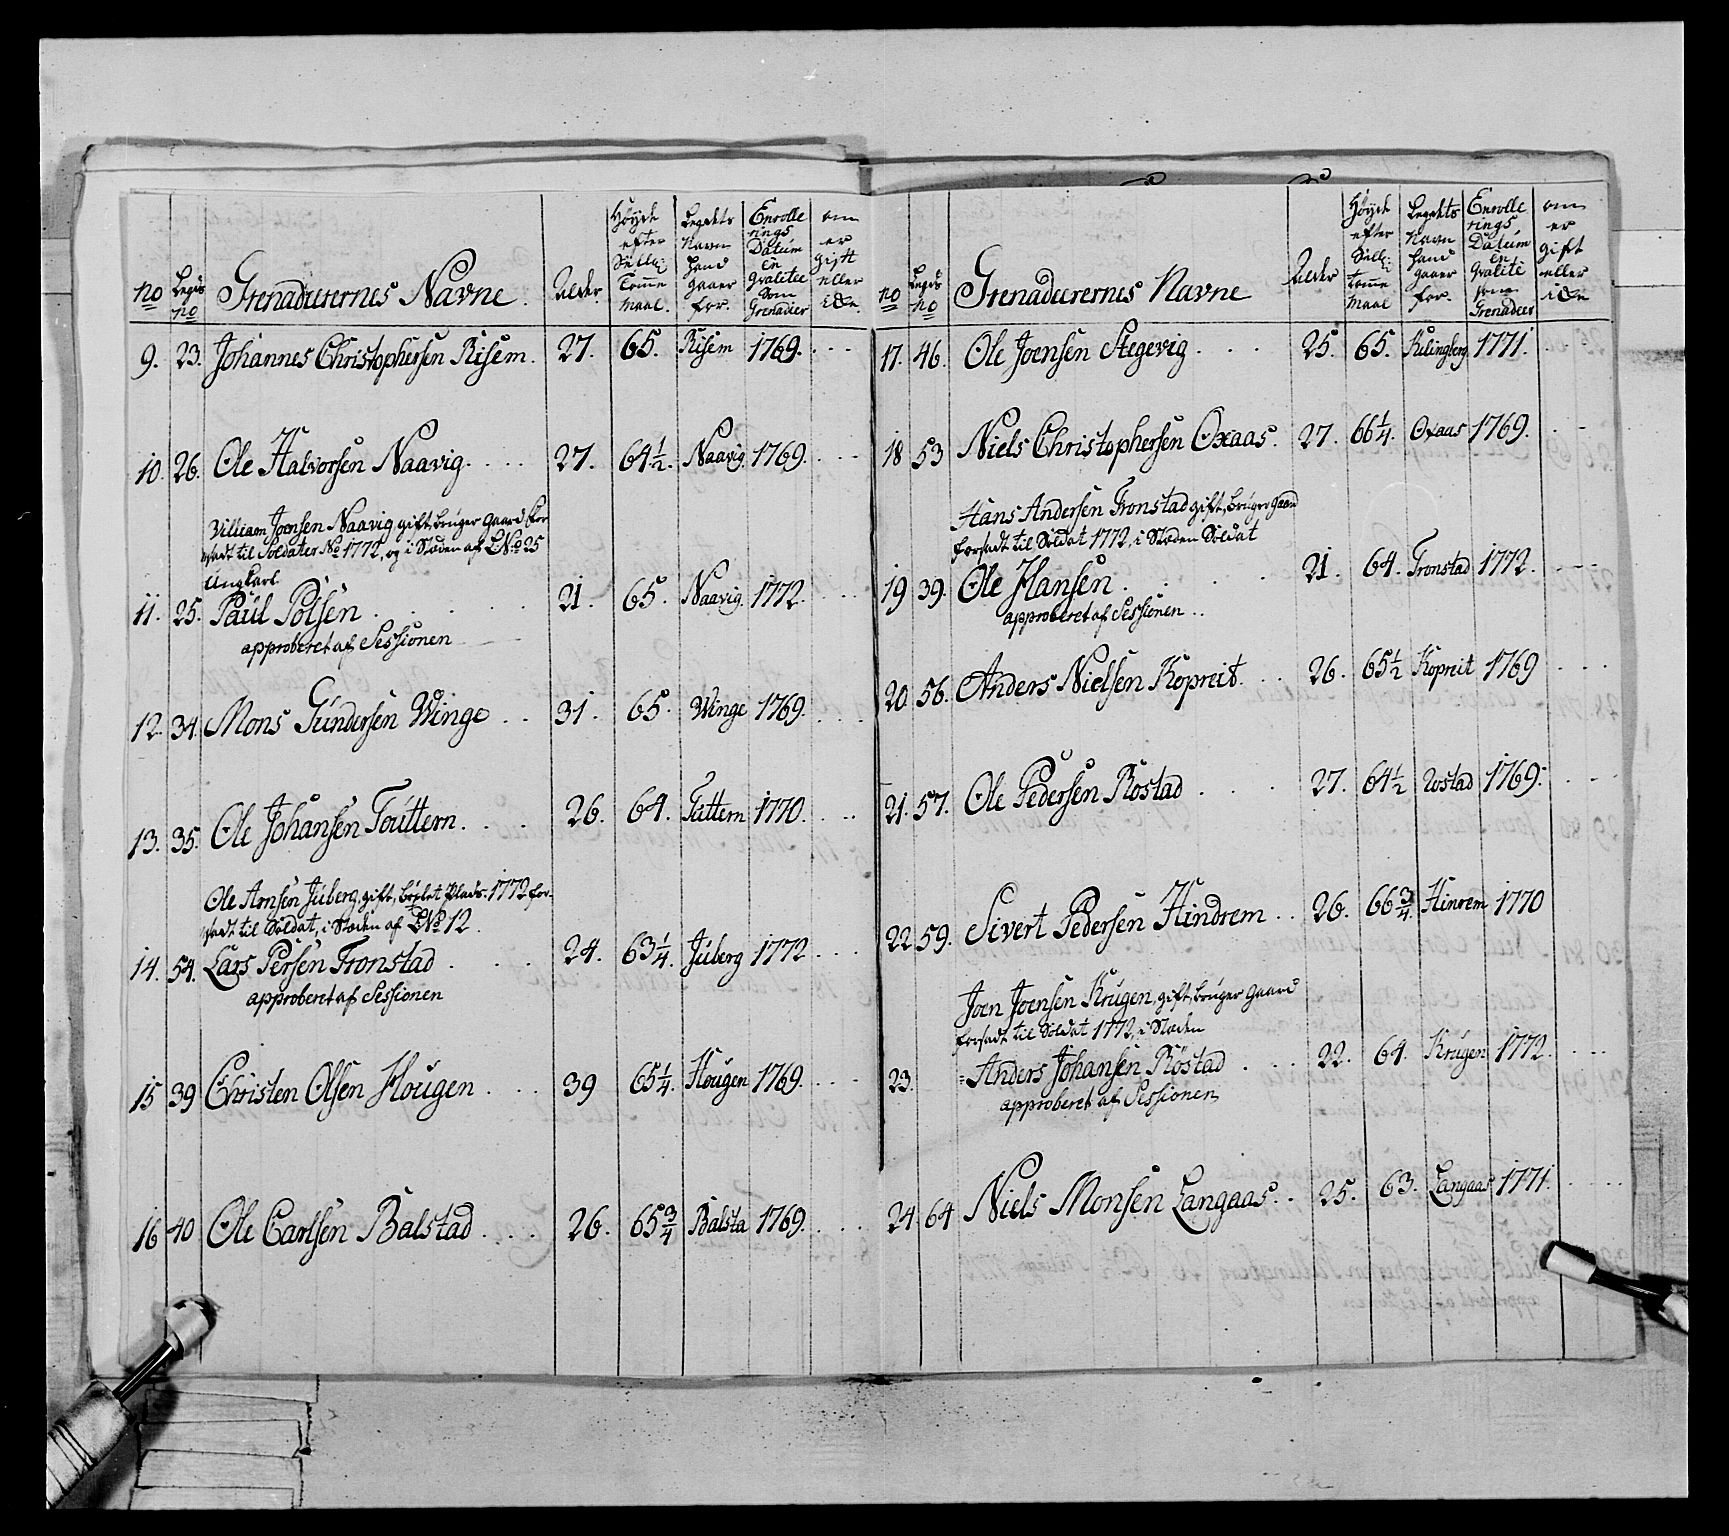 no
Legds no
Grenadeerernes Navne.
Alder
Høyde efter Sælla: Tomme maal.
Legdets Navn hand gaaer for.
Enrollerings Datum en qvalitee Som Grenadier
om er gift eller icke.
9. 23. Johannes Christophersen Risem. 27. 65. Risem 1769. . - -
10. 26. Ole Halvorsen Naavig. . . . 27. 64½. Naavig. 1769. . - -
Villiam Joensen Naavig, gift, bruger Gaard for
sadt til Soldater No 1772, og i Stæden af LNo 25
Ungkarl
11. 25. Paul Polsen . . . . . 21. 65. Naavig. 1772. . . .
approberet af Sessionen
12. 34. Mons Gundersen Winge . . 31. 65. Winge 1769. . . .
13. 35. Ole Johansen Fouttern. . . 26. 64. Futtern 1770. . - -
Ole Arnsen Juberg, gift, bøxlet Plads. 1772 for-
sadt til Soldat, i Stæden af LNo 12.
14. 54. Lars Persen Fronstad . . . 24. 63¼. Juberg 1772 . . .
approberet af Sessionen
15 39 Christen Olsen Hougen . . . 39 65¼. Hougen 1769. . - -
16 40 Ole Carlsen Balstad . . . 26. 65¾ Balsta 1769. . . .
no
Legds no
Grenadeerernes Navne
Alder
Høyde efter Sælli: tomme Maal
Legdets Navn hand gaaer for.
Enrollerings Datum en Qvalité som Grenadeer
om er gift eller icke
17. 46. Ole Joensen Stegevig . . . 25. 65. Kulingberg 1771. . .
18 53 Niels Christophersen Oxaas. 27. 66¼. Oxaas 1769. . -
Hans Andersen Fronstad gift, bruger Gaard
forsadt til Soldat 1772, i Stæden Soldat
19 39. Ole Hansen . . . . 21. 64. Fronstad 1772. . - -
approberet af Sessionen . .
20. 56. Anders Nielsen Kopreit. . . 26. 65½ Kopreit 1769 . . .
21. 57. Ole Pedersen Rostad . . . 27. 64½ Rostad 1769. . . .
22 59. Sivert Pedersen Hindrem . . 26. 66¾. Hinrem 1770
Joen Joensen Krugen, gift, bruger Gaard
forsadt til Soldat 1772, i Stæden
23. = Anders Johansen Röstad . . . 22. 64. Krugen 1772. . - -
approberet af Sessionen
24 64 Niels Monsen Langaas. . 25. 63. Langaas 1771. . . .